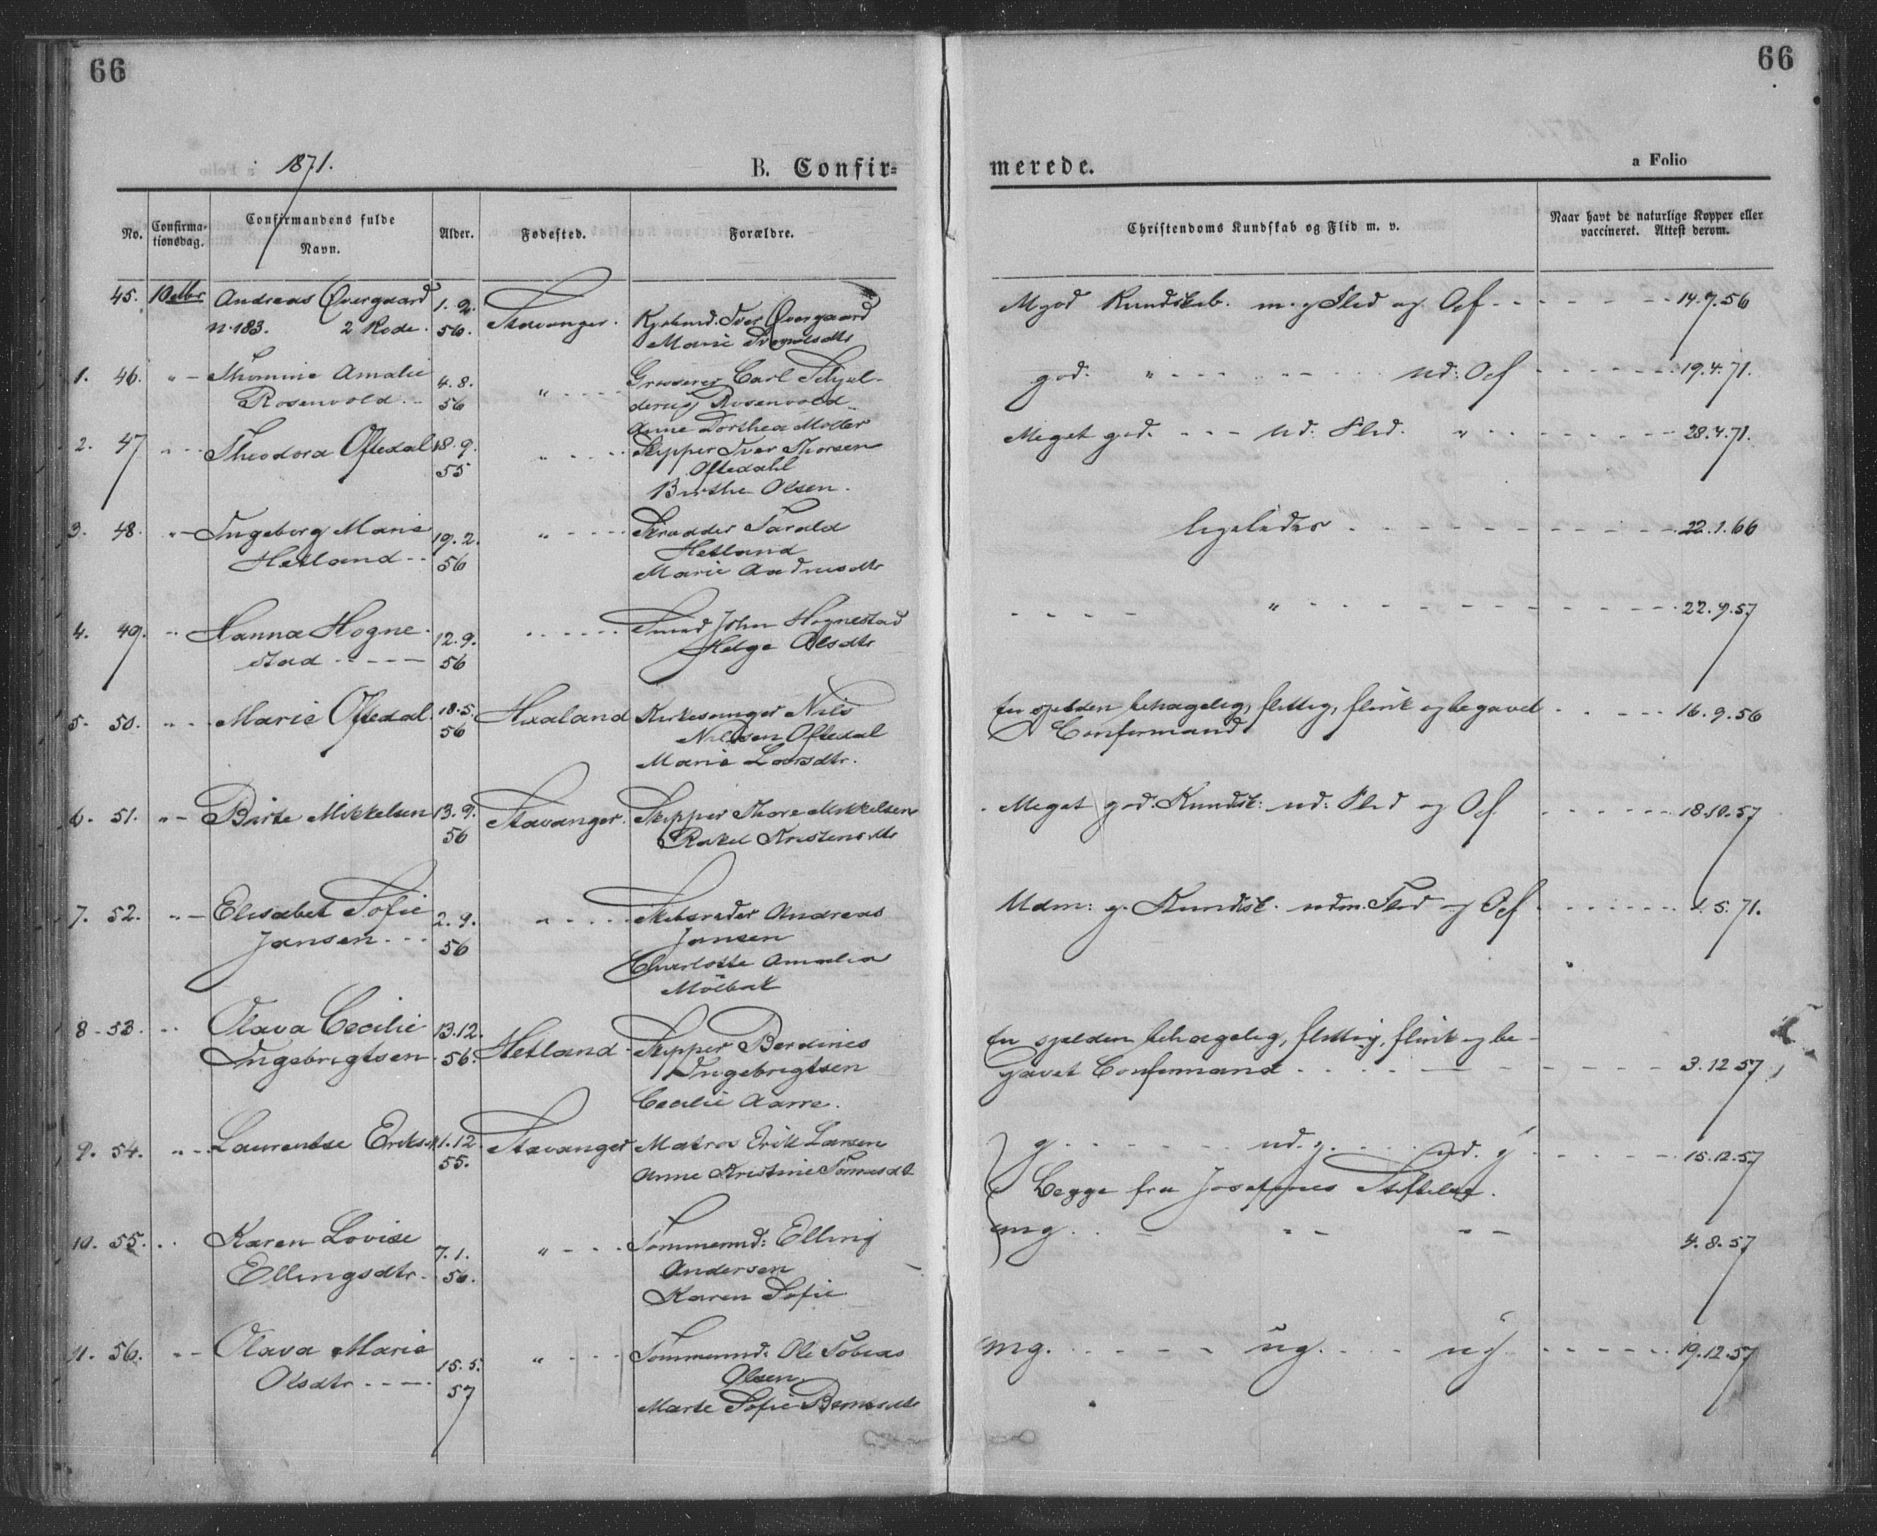 66
66
1871.
B. Confir=
merede.
a Folio
No.
Confirma-
tionsdag.
Confirmandens fulde
Navn.
Alder.
Fødested.
Forældre.
Christendoms Kundskab og Flid m. v.
Naar havt de naturlige Kopper eller
vaccineret. Attest derom.
45. Andreas Øvergaard 1. 2. Kud: Iver Øvergaard Mgod Kundskab. m. g Flid og Of - - - - - 14.7.56
n. 183. 2 Rode. 56. Stavanger. Marie
1. 46. " - Thomine Amalie 4. 8. " - - - - Carl Schjel- god. " - - - - - ud: Of - - - - - 19.4.71.
Rosenvold - 56 derup Rosenvold
Anne Dorthea
2. 47 " - - Theodora Oftedal 18. 9. " - - - - Skipper Iver Thorsen Meget god. - - - Ud: Flid. " - - - - - 28.4.71.
55 Oftedahl
Birthe Olsen.
3. 48. " - Ingeborg Marie 19. 2. " - - - - Skrædder Tarald ligeledes - - - - - 22.1.66
Hetland - - 56 Hetland
Marie Andreasdtr
4. 49. " - Hanna Hogne- 12. 9. - - - - - Smed John Hognestad - - - - " - - - - - 22.9.57
stad - - - - 56 Helge Olsdtr
5. 50. " - - Marie Oftedal. 18. 5. Høiland Kirkesanger Nils En sjelden behagelig, flittig, flink og begavet - - - - 16.9.56
56 Nilssen Oftedal Confirmand
Marie Larsdtr.
6. 51. " - Barte Mikkelsen 13. 9. Stavanger. Skipper Thore Mikkelsen Meget god. Kundsk: ud: Flid og Of - - - - - 18.10.57
56 Rakel Kristensdtr
7. 52. " - Elisabet Sofie 2. 9. " - - - - Andreas Udm: g. Kundsk. udm. Flid og Of - - - - - 1.5.71.
Jansen - - - 56 Jansen
Charlotte Amalia
8 - 53. - - Olava Cecilie 13.12. Skipper Berdines En sjelden behagelig, flittig, flink og be-
Ingebrigtsen 56. Hetland Ingebrigtsen gavet Confirmand - - - - - 3.12.57
Cecilie Aarre.
9. 54. " - - Laurentse Eriksd. 1.12. Stavanger Matros Erik Larsen g. - - - - ud. g. - - - ud. g - - - - - 15.12.57
55. Anne Kristine Begge fra Josefines Stiftelse.
10. 55. - - Karen Lovise 7. 1. " - - - Tømmermd: Elling mg. - - - - - - - 4.8.57
Ellingsdtr. 56. Andersen
Karen Sofie
11. 56. - - Olava Marie 15. 5. " - - - Tømmermd: Ole Tobias mg. - - - - - ug. - - - ug - - - - - 19.12.57
Olsdtr - - - - 57 Olsen
Marte Sofie